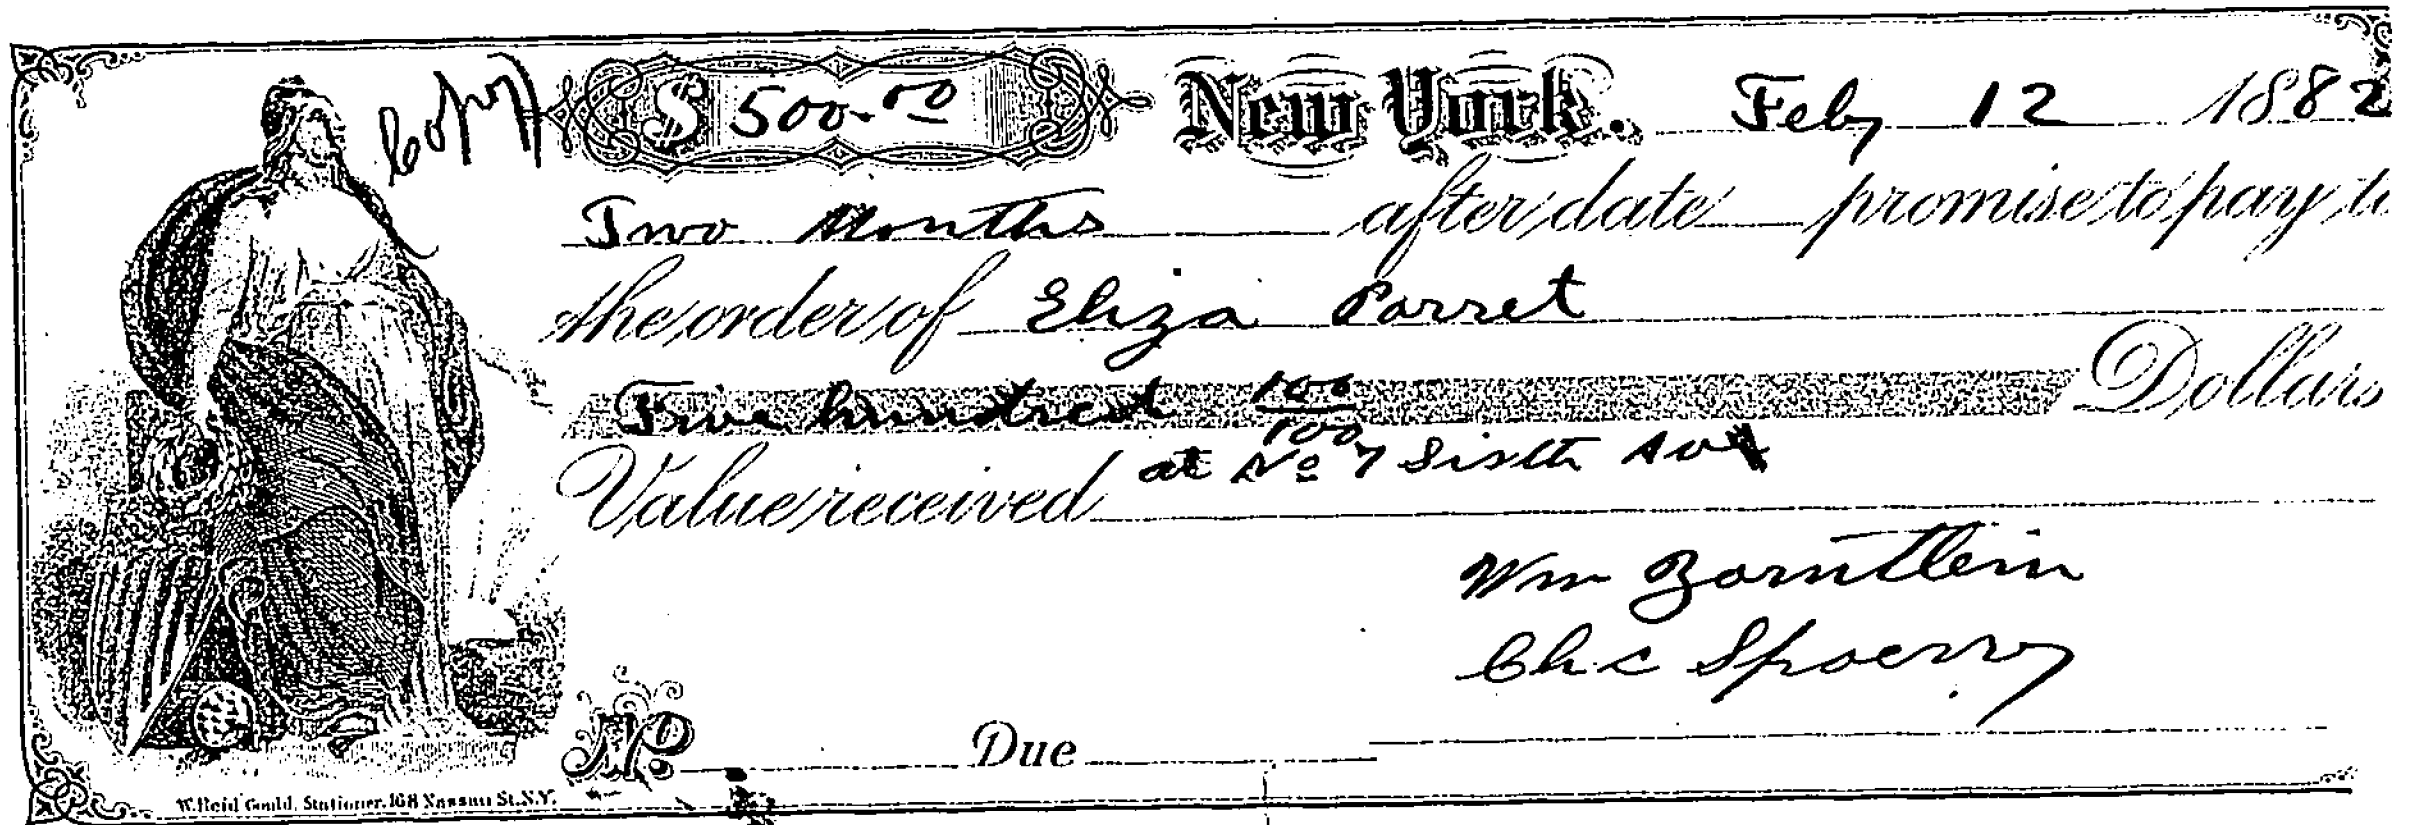 Copy $ 500.00 New York. Feby 12 1882
Two Months after date promise to pay to
the order of Eliza Parret
Five hundred 100/100 Dollars
Value received at No 7 Sixth Ave
Wm Zorntlein
Chs Spoerry
No. Due
W. Reid Gould, Stationer, 168 Nassau St. N.Y.